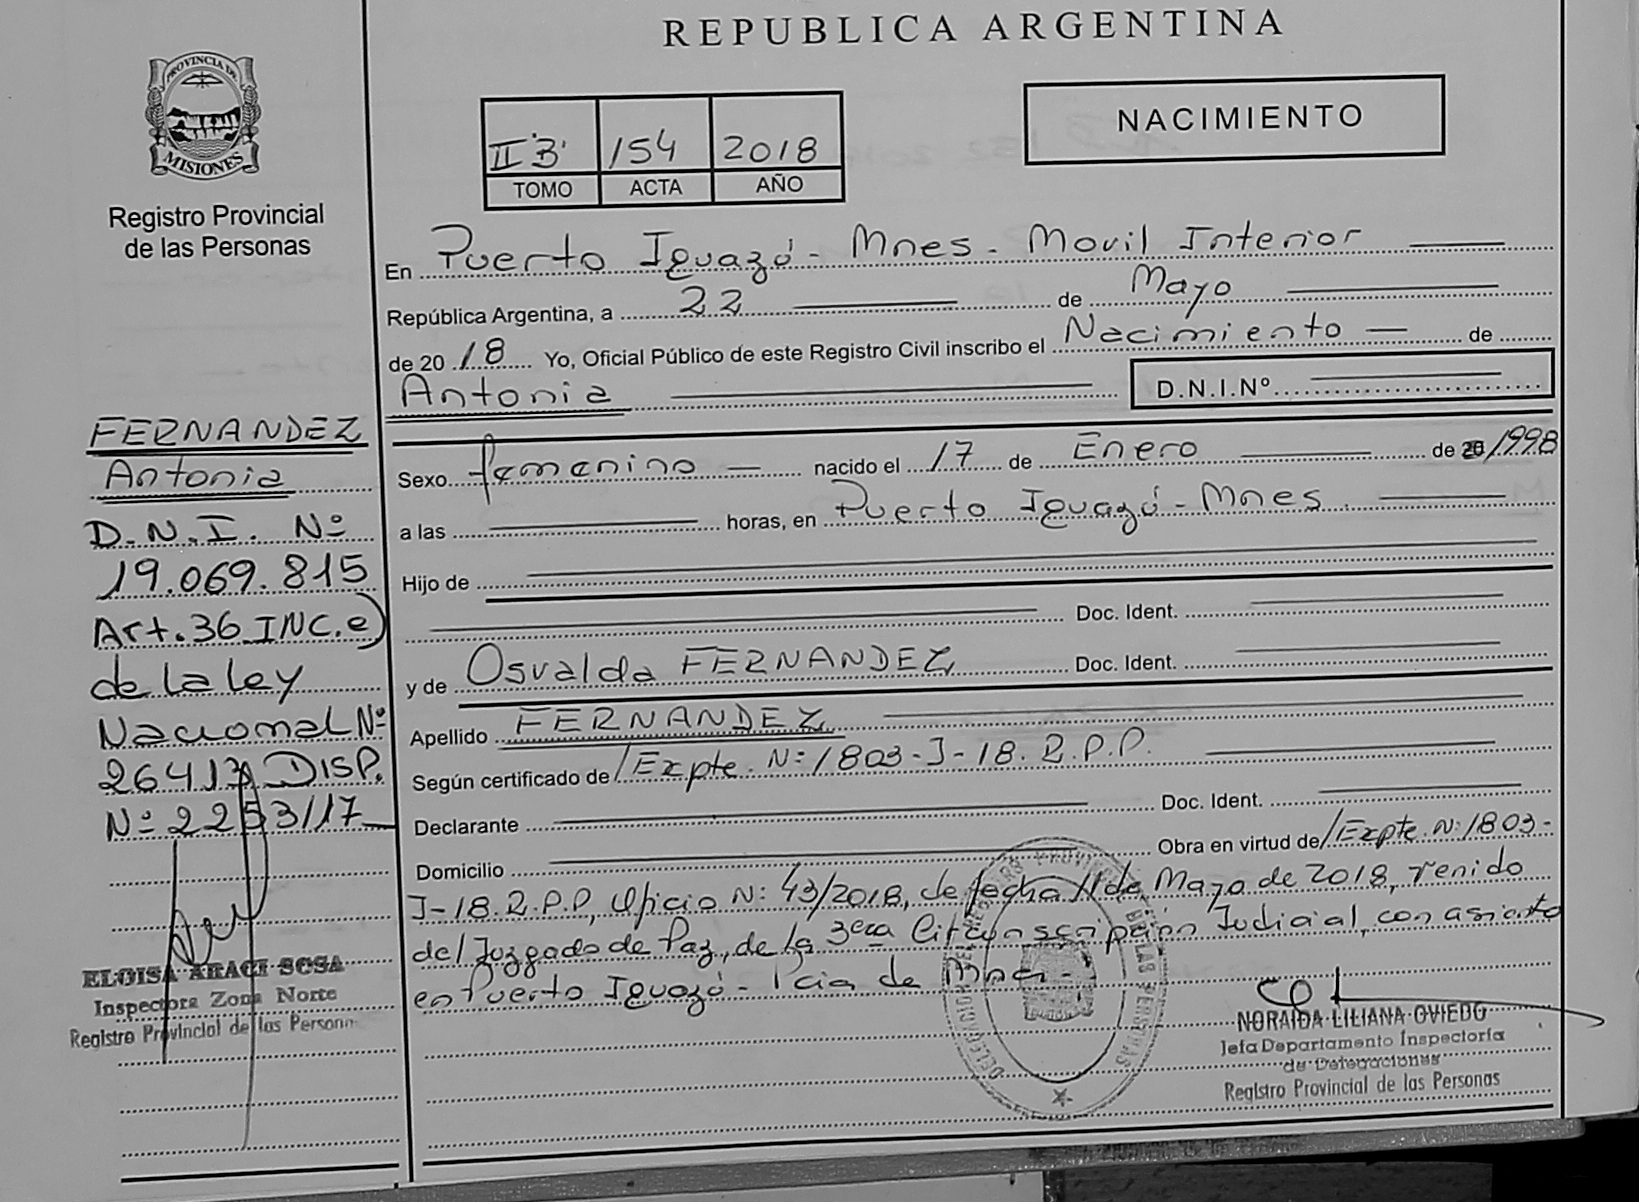 REPUBLICA ARGENTINA
PROVINCIA DE
MISIONES
Registro Provincial
de las Personas
II "B" 154 2018
TOMO ACTA AÑO
NACIMIENTO
En Puerto Iguazú - Mnes - Movil Interior
República Argentina, a 22 de Mayo
de 2018 Yo, Oficial Público de este Registro Civil inscribo el Nacimiento de
Antonia D.N.I.Nº
Sexo femenino nacido el 17 de Enero de 20/1998
a las horas, en Puerto Iguazú - Mnes
Hijo de
Doc. Ident.
y de Osvalda FERNANDEZ Doc. Ident.
Apellido FERNANDEZ
Según certificado de/Expte. N: 1803-J-18. R.P.P.
Declarante Doc. Ident.
Domicilio Obra en virtud de/Expte. N: 1803-
J-18.R.P.P, Oficio N: 43/2018, de fecha 11 de Mayo de 2018, venido
del Juzgado de Paz, de la 3era Circunscripción Judicial, con asiento
en Puerto Iguazú - Pcia de Mnes -
NORAIDA LILIANA OVIEDO
Jefa Departamento Inspectoría
de Delegaciones
Registro Provincial de las Personas
FERNANDEZ
Antonia
D.N.I. Nº
19.069.815
Art.36 INC.e)
de la ley
Nacional Nº
26413 DISP.
Nº 2253/17
ELOISA ARACI SOSA
Inspectora Zona Norte
Registro Provincial de las Persona
DE LAS PERSONAS